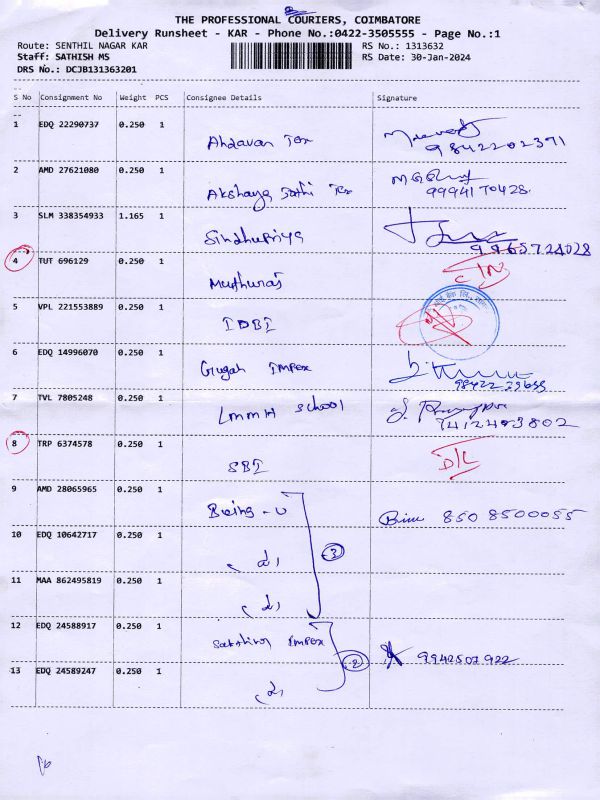 THE PROFESSIONAL COURIERS, COIMBATORE
Delivery Runsheet - KAR - Phone No.:0422-3505555 - Page No.:1
Route: SENTHIL NAGAR KAR RS No.: 1313632
Staff: SATHISH MS RS Date: 30-Jan-2024
DRS No.: DCJB131363201
S No Consignment No Weight PCS Consignee Details Signature
1 EDQ 22290737 0.250 1 Tex 9842202371
2 AMD 27621080 0.250 1 Akshaya Tex 9994170428
3 SLM 338354933 1.165 1 Sindhupriya 9965724028
4 TUT 696129 0.250 1 Muthuraj
5 VPL 221553889 0.250 1 IDBI
6 EDQ 14996070 0.250 1 Gugan Impex
7 TVL 7805248 0.250 1 LMMH School 7412403802
8 TRP 6374578 0.250 1 SBI D/L
9 AMD 28065965 0.250 1 Being - U 850 8500055
10 EDQ 10642717 0.250 1
3
11 MAA 862495819 0.250 1
12 EDQ 24588917 0.250 1 Impex
2 9942507922
13 EDQ 24589247 0.250 1